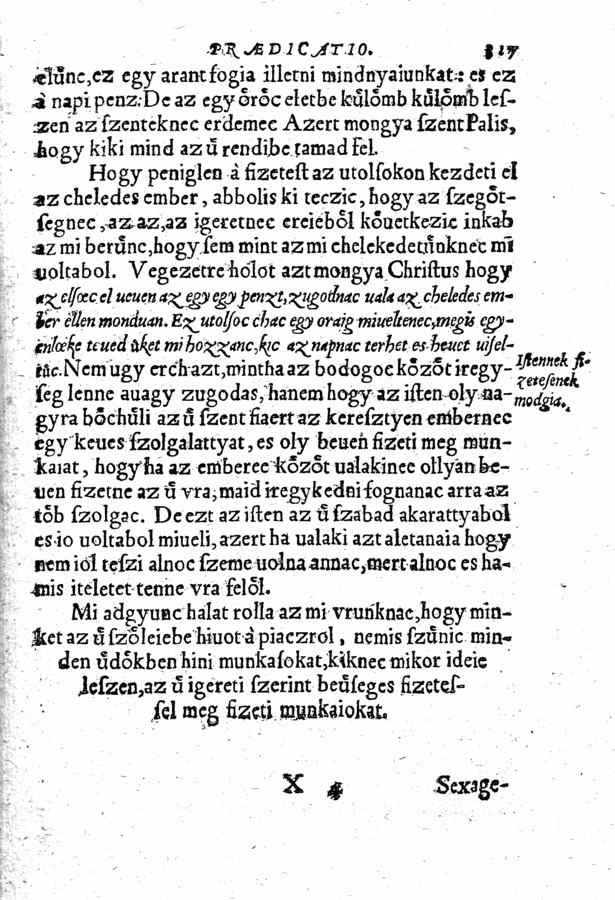 PRÆDICATIO. 317
elűnc,ez egy arant fogia illetni mindnyaiunkat: es ez
à napi penz: De az egy ôrôc eletbe kůlômb kůlômb leſ-
zen az ſzenteknec erdemec Azert mongya ſzent Palis,
hogy kiki mind az ű rendibe tamad fel.
Hogy peniglen à fizeteſt az utolſokon kezdeti el
az cheledes ember, abbolis ki teczic, hogy az ſzegôt-
ſegnec, az az, az igeretnec ereiebôl kôuetkezic inkab
az mi berűnc, hogy ſem mint az mi chelekedetűnknec mi
uoltabol. Vegezetre holot azt mongya Chriſtus hogy
az elſoec el ueuen az egy egy penzt, zugodnac uala az cheledes em-
ber ellen monduan. Ez utolſoc chac egy oraig miueltenec, megis egy-
enloeke teued űket mi hozzanc, kic az napnac terhet es heuet uiſel-
tűc. Nem ugy erch azt, mintha az bodogoc kôzôt iregy-
ſeg lenne auagy zugodas, hanem hogy az iſten oly na-
gyra bôchűli az ű ſzent fiaert az kereſztyen embernec
egy keues ſzolgalattyat, es oly beuen fizeti meg mun-
kaiat, hogy ha az emberec kôzôt ualakinec ollyan be-
uen fizetne az ű vra, maid iregykedni fognanac arra az
tôb ſzolgac. De ezt az iſten az ű ſzabad akarattyabol
es io uoltabol miueli, azert ha ualaki azt aletanaia hogy
nem iôl teſzi alnoc ſzeme uolna annac, mert alnoc es ha-
mis iteletet tenne vra felôl.
Iſtennek fi-
zeteſenek
modgia.
Mi adgyunc halat rolla az mi vrunknac, hogy min-
ket az ű ſzôleiebe hiuot à piaczrol, nemis ſzűnic min-
den űdôkben hini munkaſokat, kiknec mikor ideie
leſzen, az ű igereti ſzerint beűſeges fizeteſ-
ſel meg fizeti munkaiokat.
X 4 Sexage-